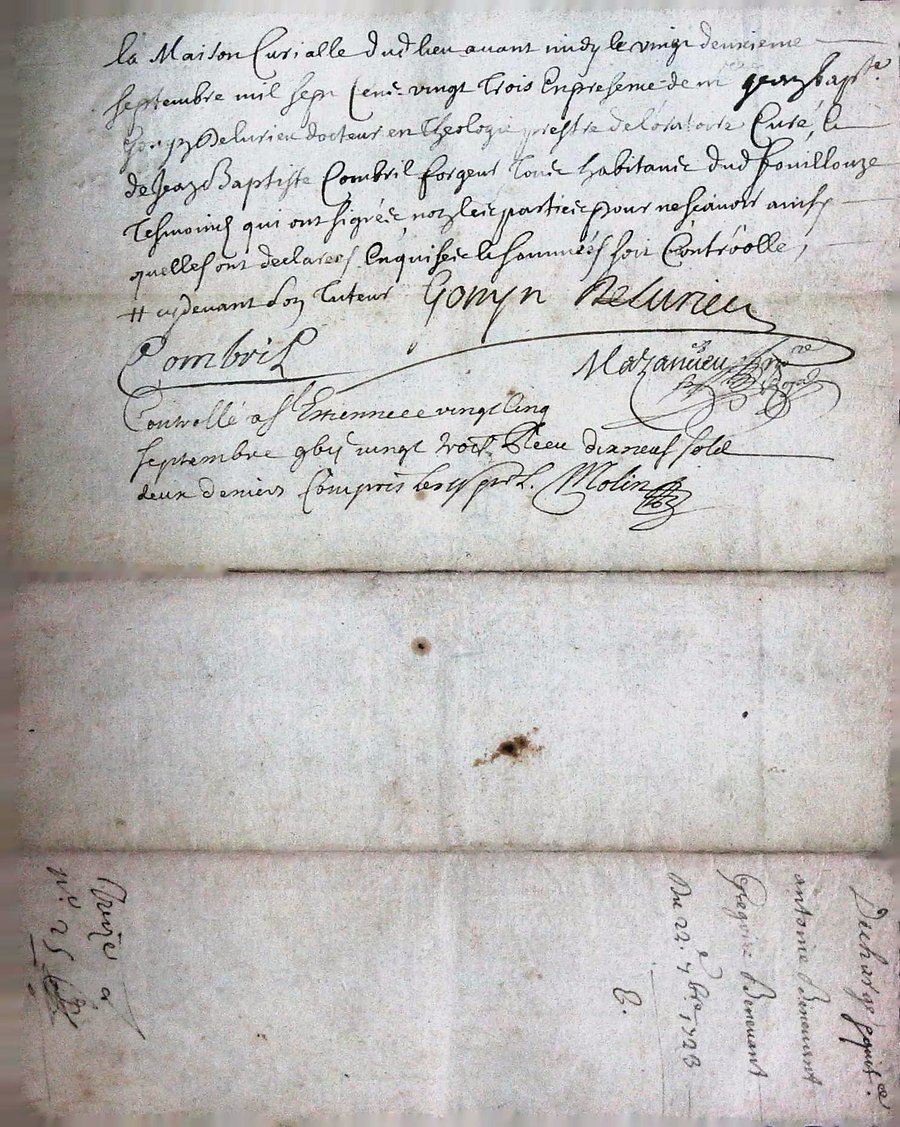 la Maison Curialle dud lieu avant midy le vingt deuxieme
septembre mil sept Cent vingt Trois En presence de mr Jean bapte
Gonyn Delurieu docteur en Theologie prestre de loratoire Curé, &
de Jean Baptiste Combril forgeur Tous habitants dud fouillouze
Tesmoins qui ont signés non les parties pour ne scavoir ainsy
quelles ont declarées Enquises & sommées soit Controolle,
# cy devant son Tuteur Gonyn Delurieu
Combril
Mazanieu nre Royal
Controllé a St Estienne ce vingt Cinq
septembre gbij vingt trois Receu dix neuf sold
deux deniers Compris les Molin
Descharge &
antoine Benevant
Gregoire Benevant
Du 22e 7bre 1723
C.
n° 25